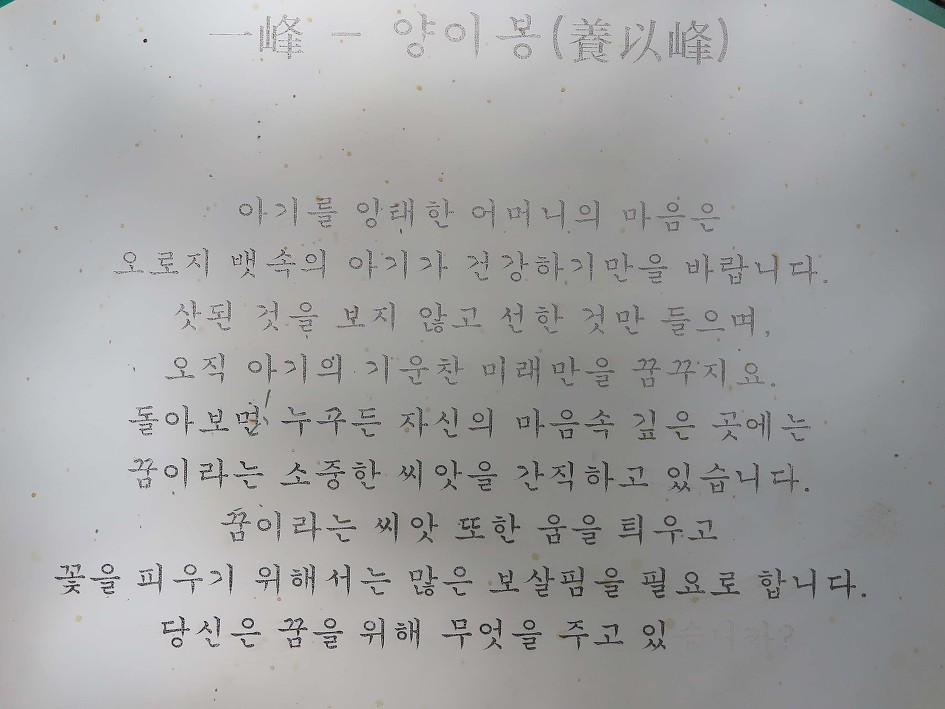 一峰 - 양이봉(養以峰)
아기를 잉태한 어머니의 마음은
오로지 뱃속의 아기가 건강하기만을 바랍니다.
삿된 것을 보지 않고 선한 것만 들으며,
오직 아기의 기운찬 미래만을 꿈꾸지요.
돌아보면 누구든 자신의 마음속 깊은 곳에는
꿈이라는 소중한 씨앗을 간직하고 있습니다.
꿈이라는 씨앗 또한 움을 틔우고
꽃을 피우기 위해서는 많은 보살핌을 필요로 합니다.
당신은 꿈을 위해 무엇을 주고 있습니까?